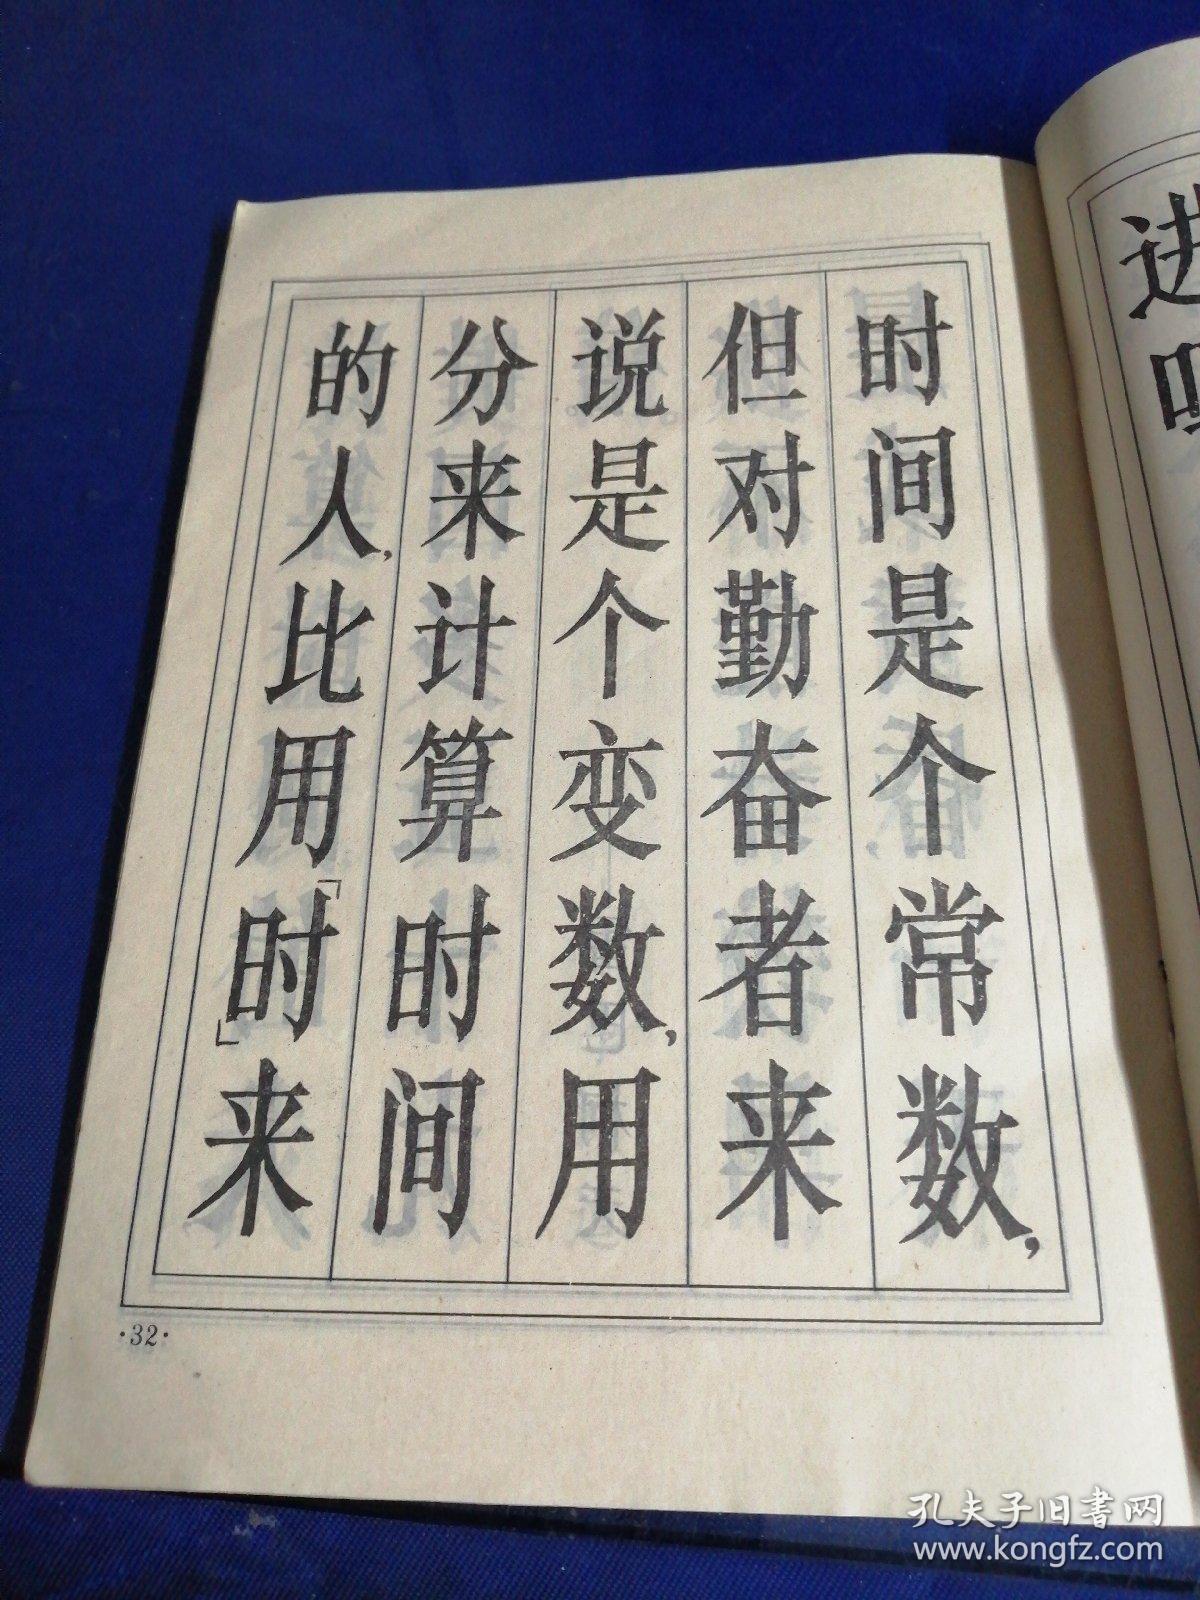 时间是个常数，
但对勤奋者来
说是个变数，用
分来计算时间
的人，比用「时」来
·32·
进
孔夫子旧书网
www.kongfz.com